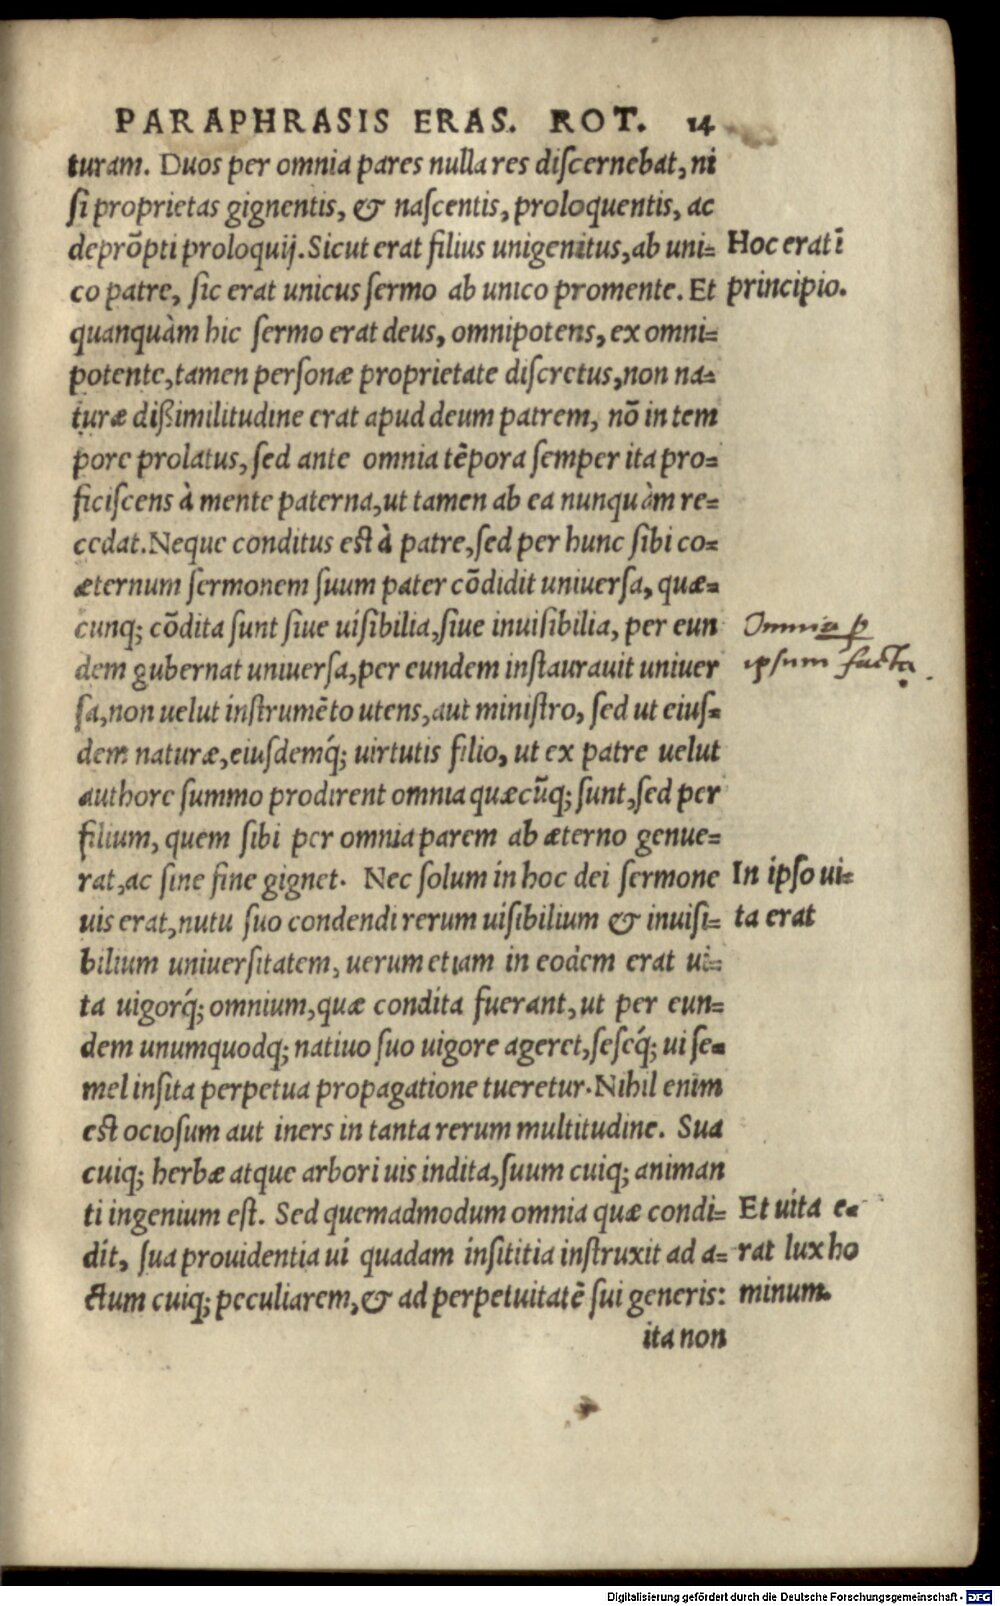 PARAPHRASIS ERAS. ROT. 14
turam. Duos per omnia pares nulla res discernebat, ni
si proprietas gignentis, & nascentis, proloquentis, ac
deprõpti proloquij. Sicut erat filius unigenitus, ab uni=
co patre, sic erat unicus sermo ab unico promente. Et
quanquàm hic sermo erat deus, omnipotens, ex omni=
potente, tamen personæ proprietate discretus, non na=
turæ dißimilitudine erat apud deum patrem, nõ in tem
pore prolatus, sed ante omnia tẽpora semper ita pro=
ficiscens à mente paterna, ut tamen ab ea nunquàm re=
cedat. Neque conditus est à patre, sed per hunc sibi co=
æternum sermonem suum pater cõdidit universa, quæ=
cunq; cõdita sunt siue uisibilia, siue inuisibilia, per eun
dem gubernat uniuersa, per eundem instaurauit uniuer
sa, non uelut instrumẽto utens, aut ministro, sed ut eius=
dem naturæ, eiusdemq́; uirtutis filio, ut ex patre uelut
authore summo prodirent omnia quæcũq; sunt, sed per
filium, quem sibi per omnia parem ab æterno genue=
rat, ac sine fine gignet. Nec solum in hoc dei sermone
uis erat, nutu suo condendi rerum uisibilium & inuisi=
bilium uniuersitatem, uerum etiam in eodem erat ui=
ta uigorq́; omnium, quæ condita fuerant, ut per eun=
dem unumquodq; natiuo suo uigore ageret, seseq́; ui se=
mel insita perpetua propagatione tueretur. Nihil enim
est ociosum aut iners in tanta rerum multitudine. Sua
cuiq; herbæ atque arbori uis indita, suum cuiq; animan
ti ingenium est. Sed quemadmodum omnia quæ condi=
dit, sua prouidentia ui quadam insititia instruxit ad a=
ctum cuiq; peculiarem, & ad perpetuitatẽ sui generis:
ita non
Hoc erat ĩ
principio.
Omnia ꝑ
ipsum facta.
In ipso ui=
ta erat
Et uita e=
rat lux ho
minum.
Digitalisierung gefördert durch die Deutsche Forschungsgemeinschaft - DFG